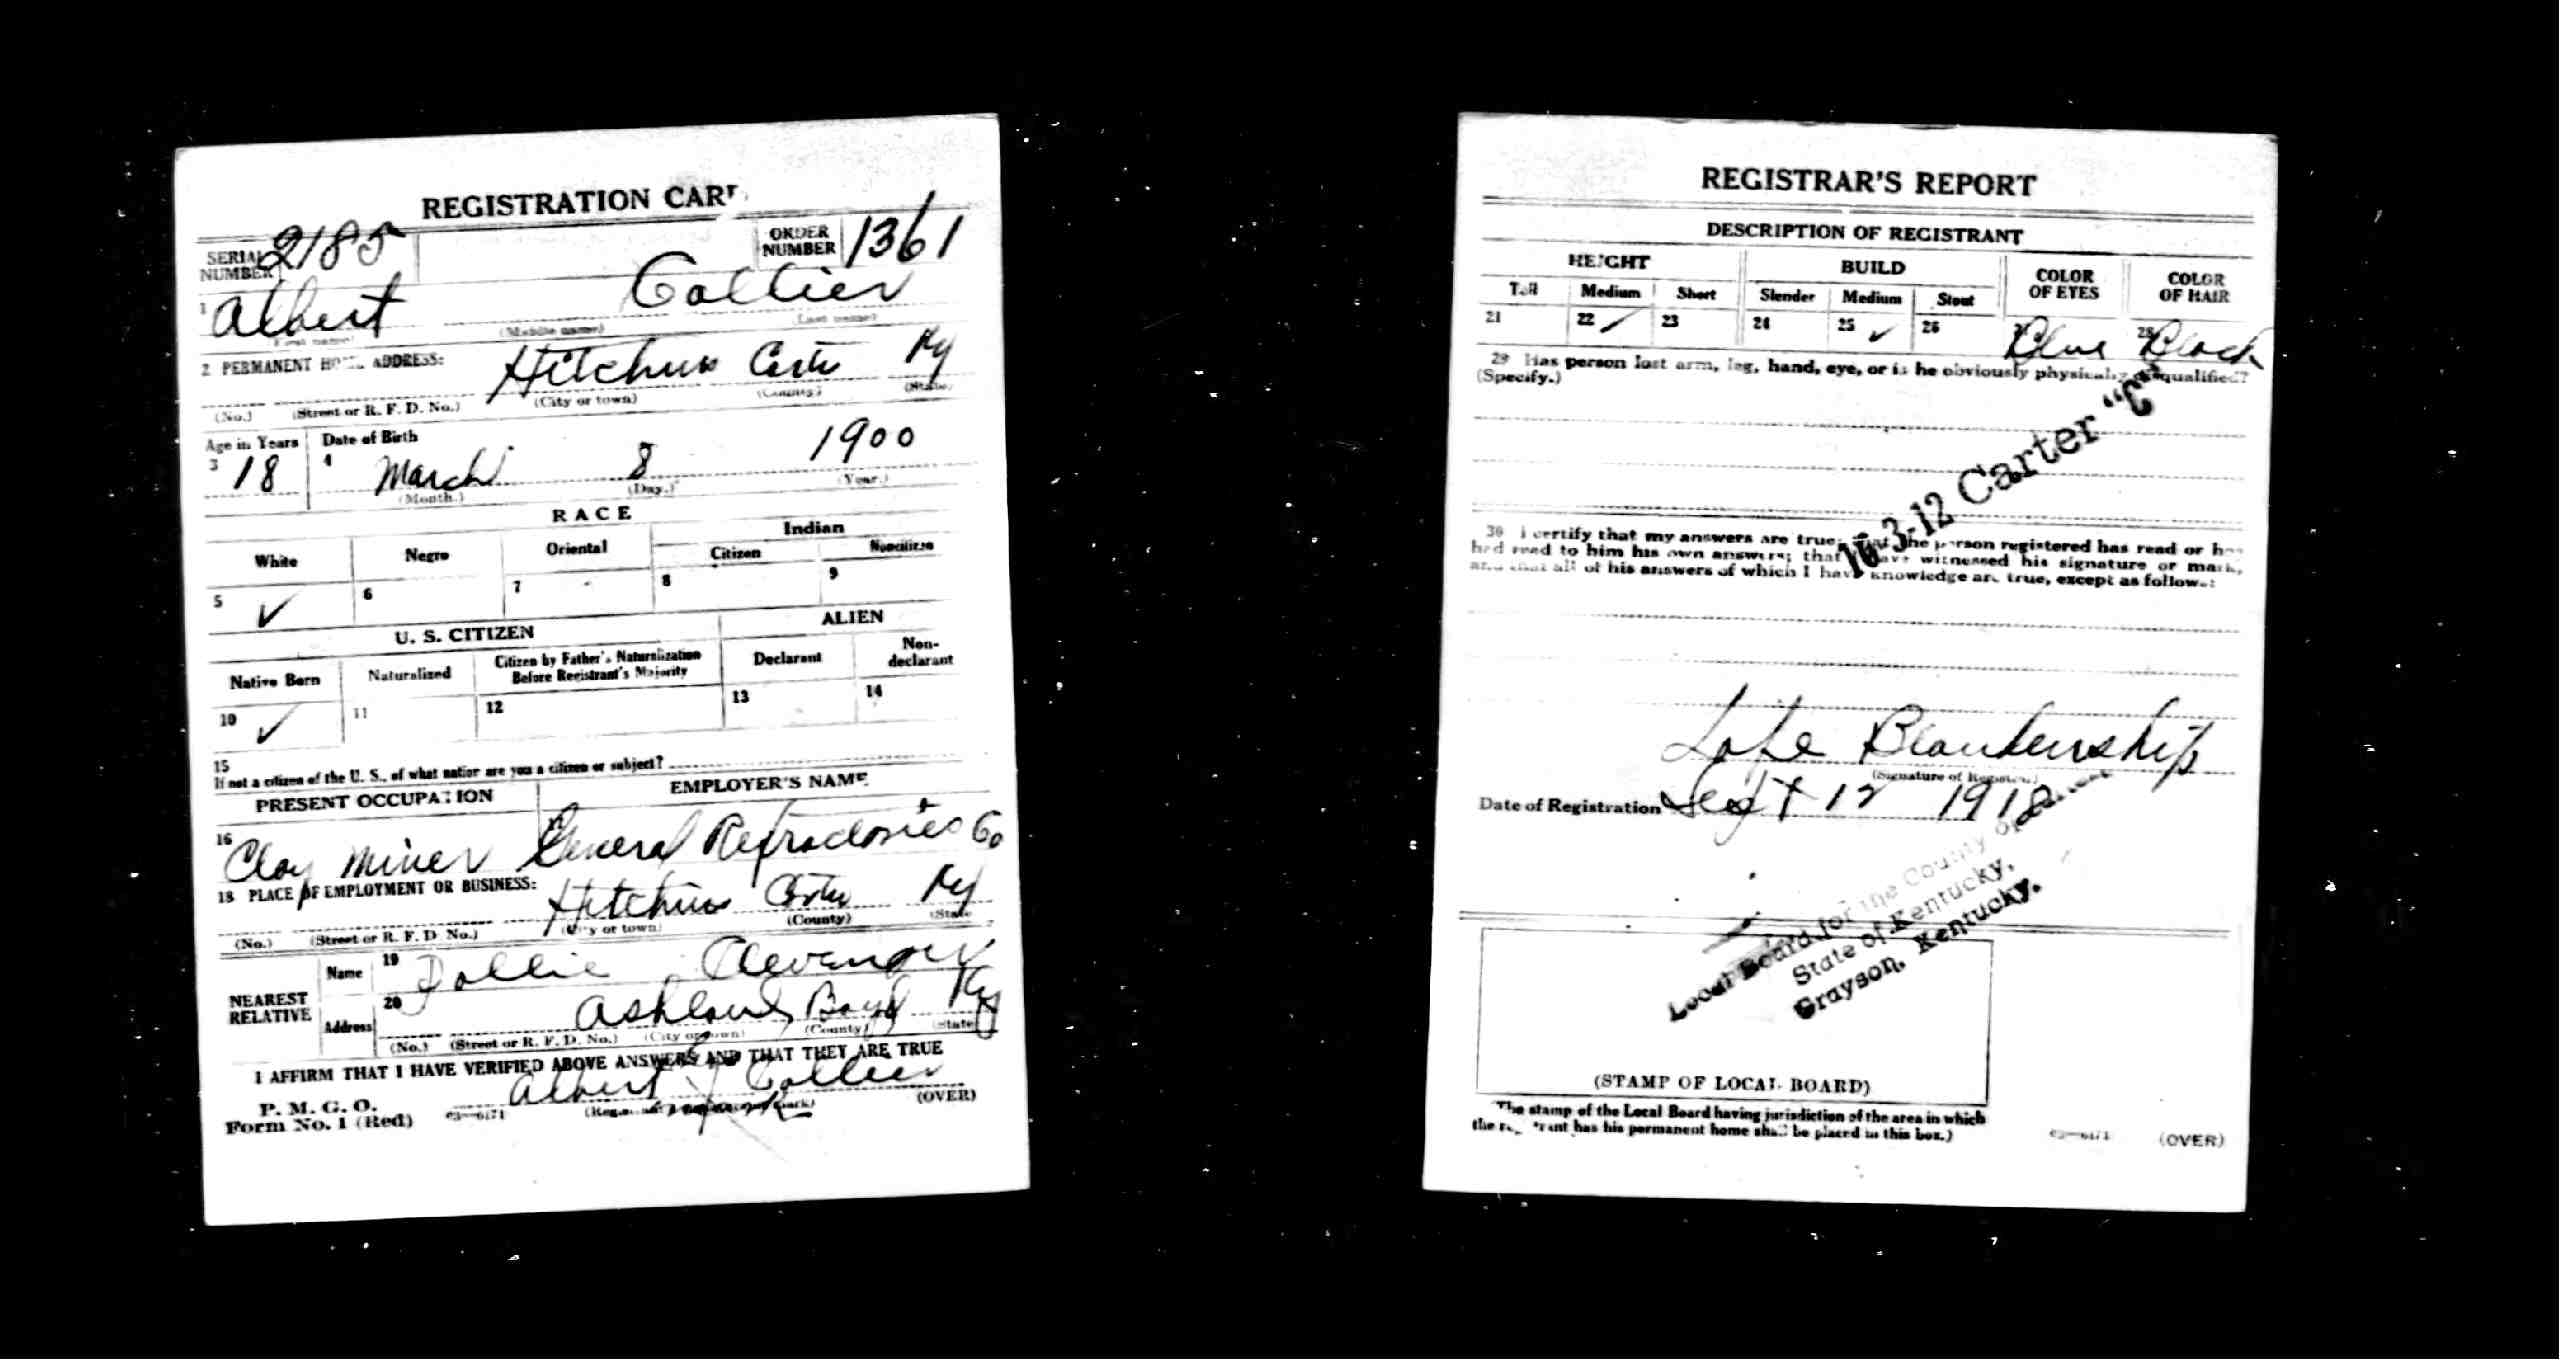 REGISTRATION CARD
SERIAL NUMBER 2185
ORDER NUMBER 1361
1 Albert Collier
(First name) (Middle name) (Last name)
2 PERMANENT HOME ADDRESS:
Hitchins Carter Ky
(No.) (Street or R. F. D. No.) (City or town) (County) (State)
Age in Years Date of Birth
3 18 4 March 8 1900
(Month.) (Day.) (Year.)
RACE
White Negro Oriental Indian
Citizen Noncitizen
5 ✓ 6 7 8 9
U. S. CITIZEN ALIEN
Native Born Naturalized Citizen by Father's Naturalization Before Registrant's Majority Declarant Non-declarant
10 ✓ 11 12 13 14
15
If not a citizen of the U. S., of what nation are you a citizen or subject?
PRESENT OCCUPATION EMPLOYER'S NAME
16 Clay Miner 17 General Refractories Co
18 PLACE OF EMPLOYMENT OR BUSINESS:
Hitchins Carter Ky
(No.) (Street or R. F. D. No.) (City or town) (County) (State)
NEAREST RELATIVE
Name 19 Dollie Clevenger
Address 20 Ashland Boyd Ky
(No.) (Street or R. F. D. No.) (City or town) (County) (State)
I AFFIRM THAT I HAVE VERIFIED ABOVE ANSWERS AND THAT THEY ARE TRUE
Albert Collier
P. M. G. O.
Form No. 1 (Red) 03—6171 mark) (OVER)
REGISTRAR'S REPORT
DESCRIPTION OF REGISTRANT
HEIGHT BUILD COLOR OF EYES COLOR OF HAIR
Tall Medium Short Slender Medium Stout
21 22 ✓ 23 24 25 ✓ 26 27 Blue 28 Black
29 Has person lost arm, leg, hand, eye, or is he obviously physically disqualified?
(Specify.)
16-3-12 Carter "C"
30 I certify that my answers are true; that the person registered has read or has
had read to him his own answers; that I have witnessed his signature or mark,
and that all of his answers of which I have knowledge are true, except as follows:
Lafe Blankenship
(Signature of Registrar)
Date of Registration Sept 12 1918
Local Board for the County of Carter
State of Kentucky,
Grayson, Kentucky.
(STAMP OF LOCAL BOARD)
(The stamp of the Local Board having jurisdiction of the area in which
the registrant has his permanent home shall be placed in this box.)
03—6171 (OVER)